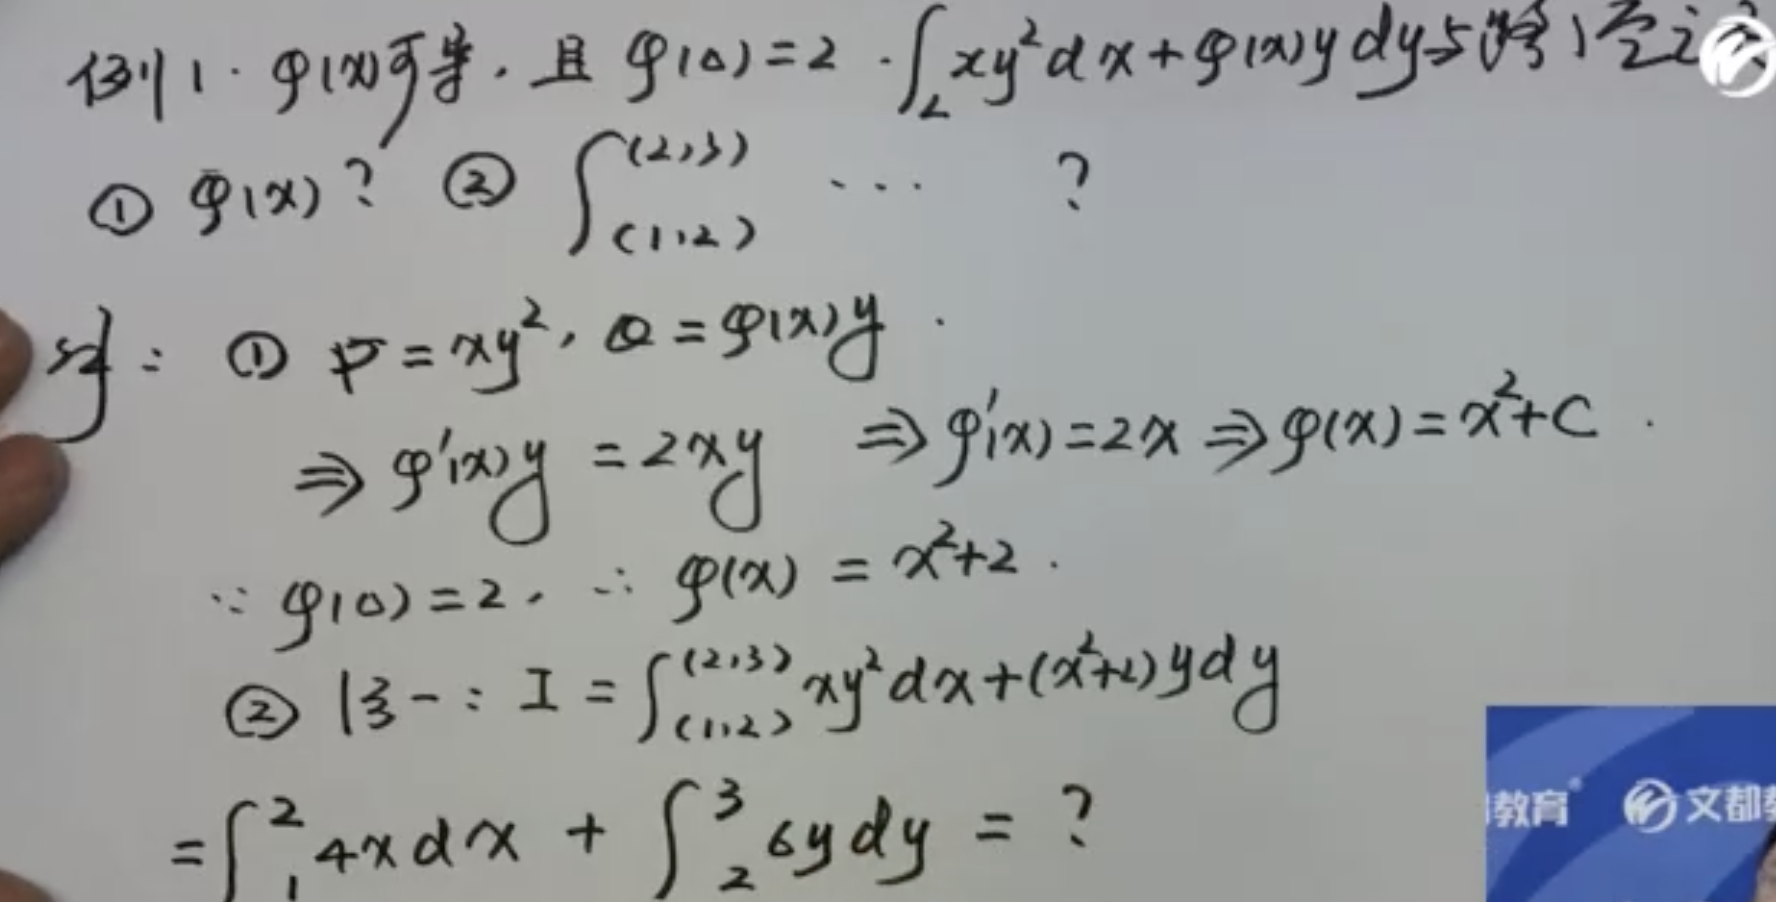 例1. φ(x)可导, 且 φ(0)=2. ∫_L xy²dx+φ(x)ydy与路径
① φ(x)? ② ∫_(1,2)^(2,3) ... ?
解: ① P=xy², Q=φ(x)y.
⇒ φ'(x)y =2xy ⇒ φ'(x)=2x ⇒ φ(x)=x²+C.
∵ φ(0)=2, ∴ φ(x) = x²+2.
② 法一: I = ∫_(1,2)^(2,3) xy²dx+(x²+2)ydy
=∫_1^2 4xdx + ∫_2^3 6ydy = ?
教育® 文都